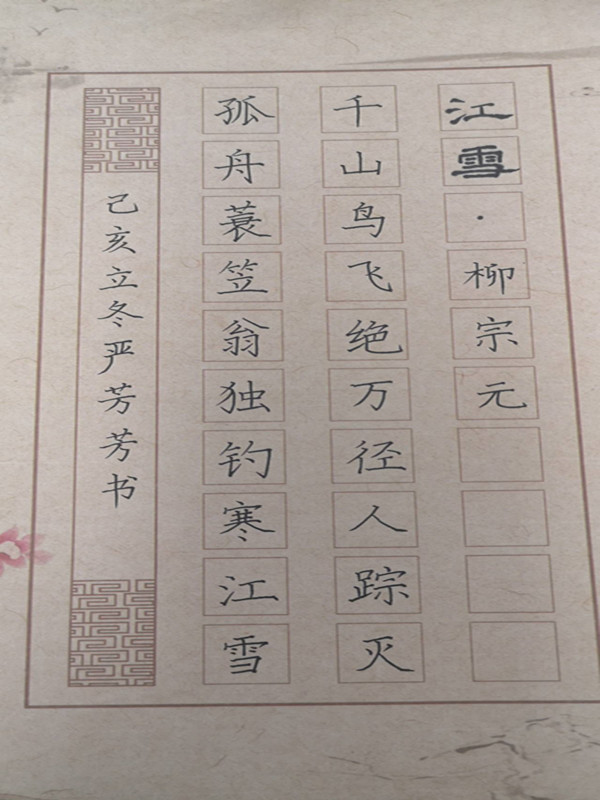 江雪·柳宗元
千山鸟飞绝万径人踪灭
孤舟蓑笠翁独钓寒江雪
己亥立冬严芳芳书